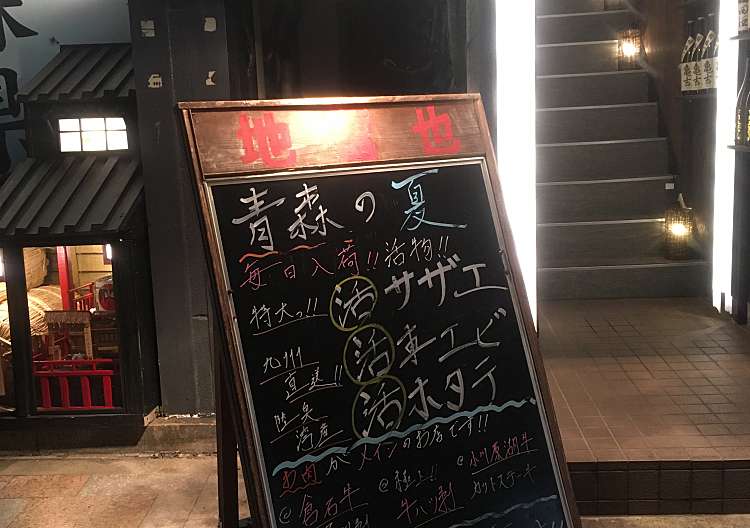 地 也
青森の夏
毎日入荷!! 活物!!
特大っ!! 活サザエ
九州直送!! 活車エビ
陸奥湾産 活ホタテ
肉がメインのお店です!!
@倉石牛
@極上!!
牛ハツ刺
@小川原湖牛
カットステーキ
亀吉
亀吉